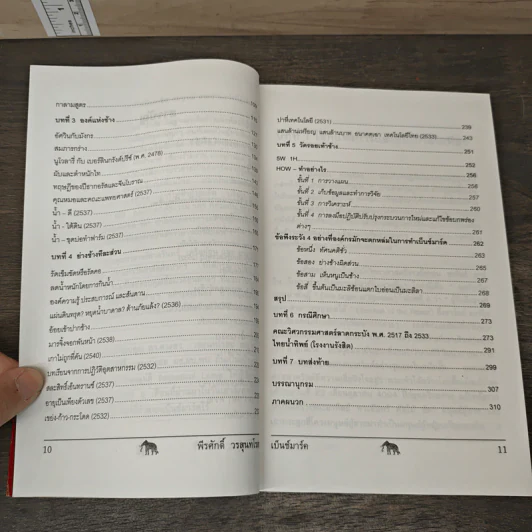 กาลามสูตร
บทที่ 3 องค์แห่งช้าง
อัศวินกับมังกร
สมภารกร่าง
นูโวลารี่ กับ เบอร์ลินกรังด์ปรีซ์ (พ.ศ. 2478)
ผับและตำหนักไท
คุณหมอและคณะแพทยศาสตร์ (2537)
น้ำ – ดี (2537)
น้ำ – ใต้ดิน (2537)
น้ำ – ขุดบ่อทำฟาร์ม (2537)
บทที่ 4 ย่างช้างทีละส่วน
รัดเข็มขัดหรือรัดคอ
ลดน้ำหนักโดยการกินน้ำ
องค์ความรู้ ประสบการณ์ และสันดาน
แผ่นดินทรุด? หยุดน้ำบาดาล? ต้านภัยแล้ง? (2536)
อ้อยเข้าปากช้าง
มารซึ่งจอกพันหน้า (2538)
เกาไม่ถูกที่คัน (2540)
บทเรียนจากการปฏิวัติอุตสาหกรรม (2532)
อายุเป็นเพียงตัวเลข (2532)
เขย่ง-ก้าว-กระโดด (2532)
10 พีรศักดิ์ วรสุนทโร
ป่าที่เทคโนโลยี (2531) 239
แสนล้านเหรียญ แสนล้านบาท อนาคตเอา เทคโนโลยีไทย (2533) 243
บทที่ 5 วัดรอยเท้าช้าง 251
5W 1H 252
HOW – ทำอย่างไร 256
ขั้นที่ 1 การวางแผน 256
ขั้นที่ 2 เก็บข้อมูลและทำการวิจัย 257
ขั้นที่ 3 การวิเคราะห์ 260
ขั้นที่ 4 การลงมือปฏิบัติปรับปรุงกระบวนการใหม่และแก้ไขข้อบกพร่อง
ต่างๆ 261
ข้อพึงระวัง 4 อย่างที่องค์กรมักจะตกหล่มในการทำเบ็นช์มาร์ค 262
ข้อหนึ่ง ทัศนคติชั่ว 263
ข้อสอง ย่างช้างผิดส่วน 265
ข้อสาม เห็นหนูเป็นช้าง 267
ข้อสี่ ขึ้นต้นเป็นมะลิซ้อนแตกใบอ่อนเป็นมะลิลา 268
สรุป 269
บทที่ 6 กรณีศึกษา 273
คณะวิศวกรรมศาสตร์ลาดกระบัง พ.ศ. 2517 ถึง 2533 273
ไทยน้ำทิพย์ (โรงงานรังสิต) 291
บทที่ 7 บทส่งท้าย 299
บรรณานุกรม 307
ภาคผนวก 310
เบ็นช์มาร์ค 11